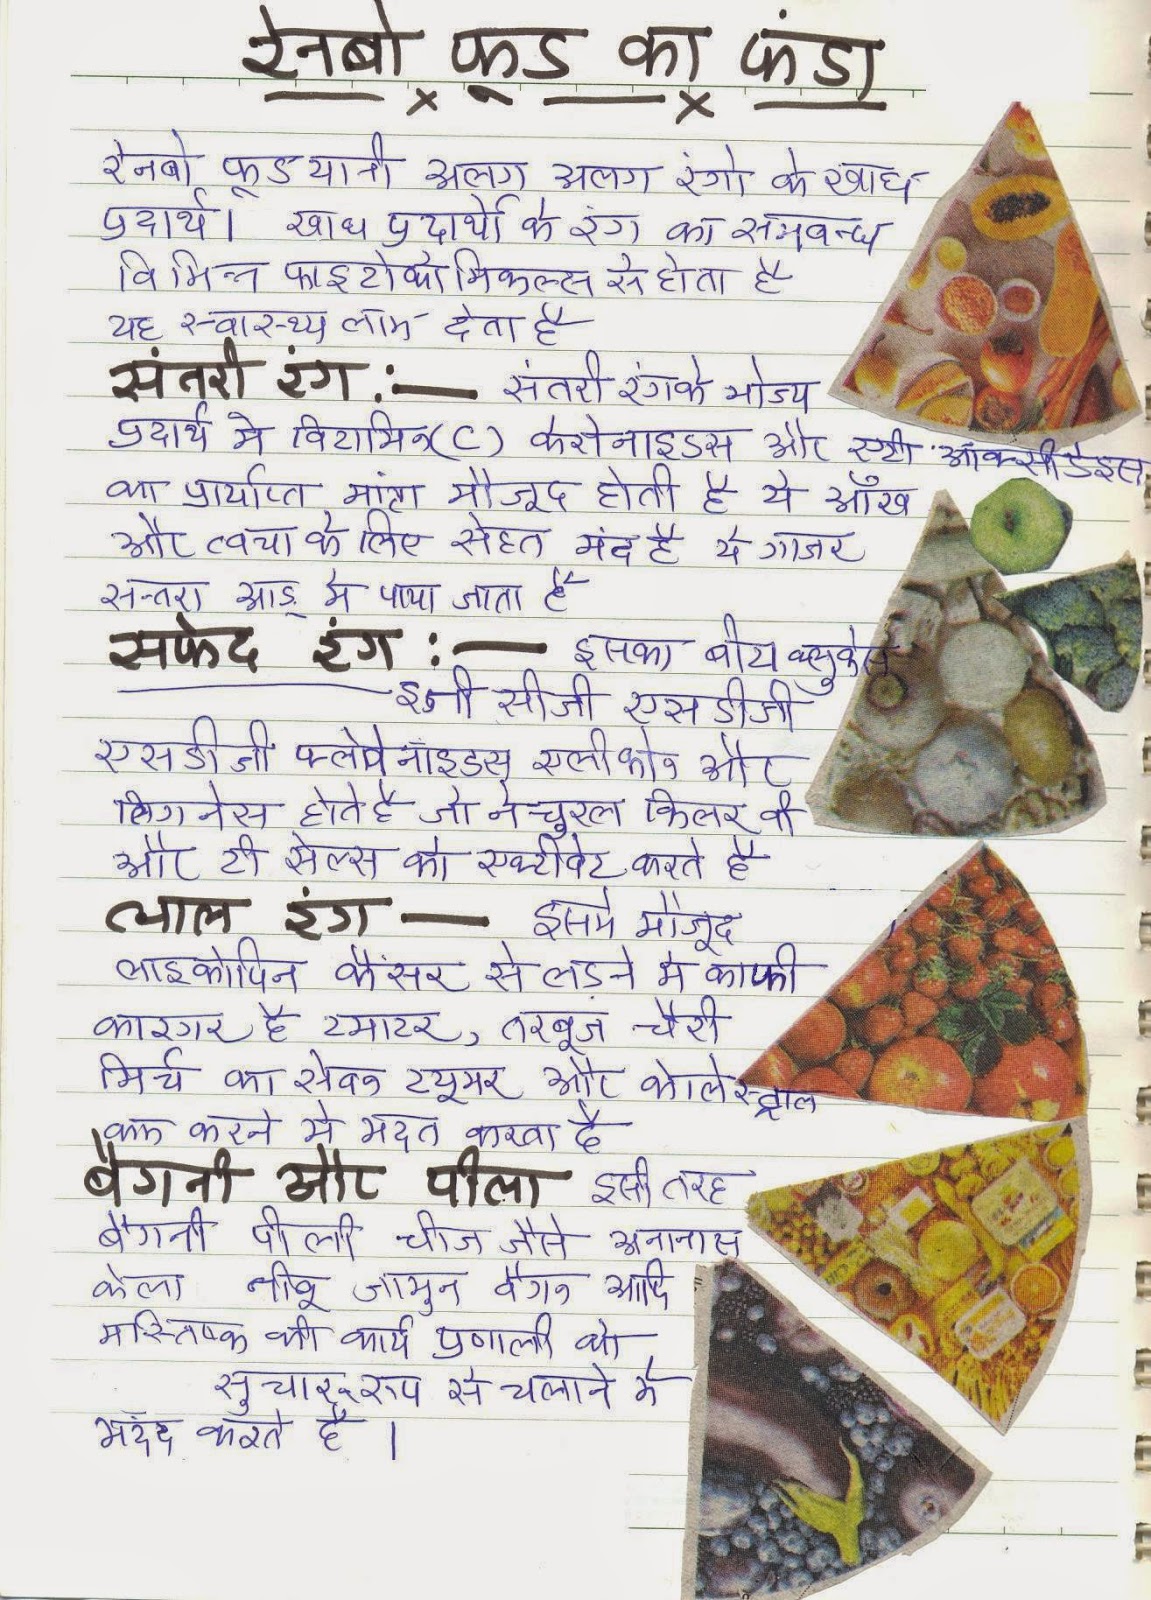 रेनबो फूड का फंडा
रेनबो फूड यानी अलग अलग रंगो के खाध
प्रदार्थ। खाध प्रदार्थो के रंग का समवन्ध
विभिन्न फाइटोकेमिकल्स से होता है
यह स्वास्थ्य लाभ देता है
संतरी रंग :— संतरी रंगके भोज्य
प्रदार्थ मे विटामिन(C) केरोनाइडस और एण्टी ऑक्सीडेइस
का प्रार्याप्त मांत्रा मौजूद होती है ये आँख
और त्वचा के लिए सेहत मंद है ये गाजर
सन्तरा आडू मे पाया जाता है
सफेद रंग :— इसका बीय
इजी सीजी एसडीजी
एसडीजी फ्लेवेनाइडस एलीकोन और
लिगनेस होते है जो नेचुरल किलर वी
और टी सेल्स को एक्टीवेट करते है
लाल रंग — इसमे मौजूद
लाइकोपिन कैंसर से लडने मे काफी
कारगर है टमाटर, तरबूज चैरी
मिर्च का सेवन टयूमर और कोलेस्ट्राल
कम करने मे मदत करता है
बैगनी और पीला इसी तरह
बैगनी पीली चीज जैसे अनानास
केला नीबू जामुन बैगन आदि
मस्तिष्क की कार्य प्रणाली को
सुचारू रूप से चलाने मे
मदद करते है ।